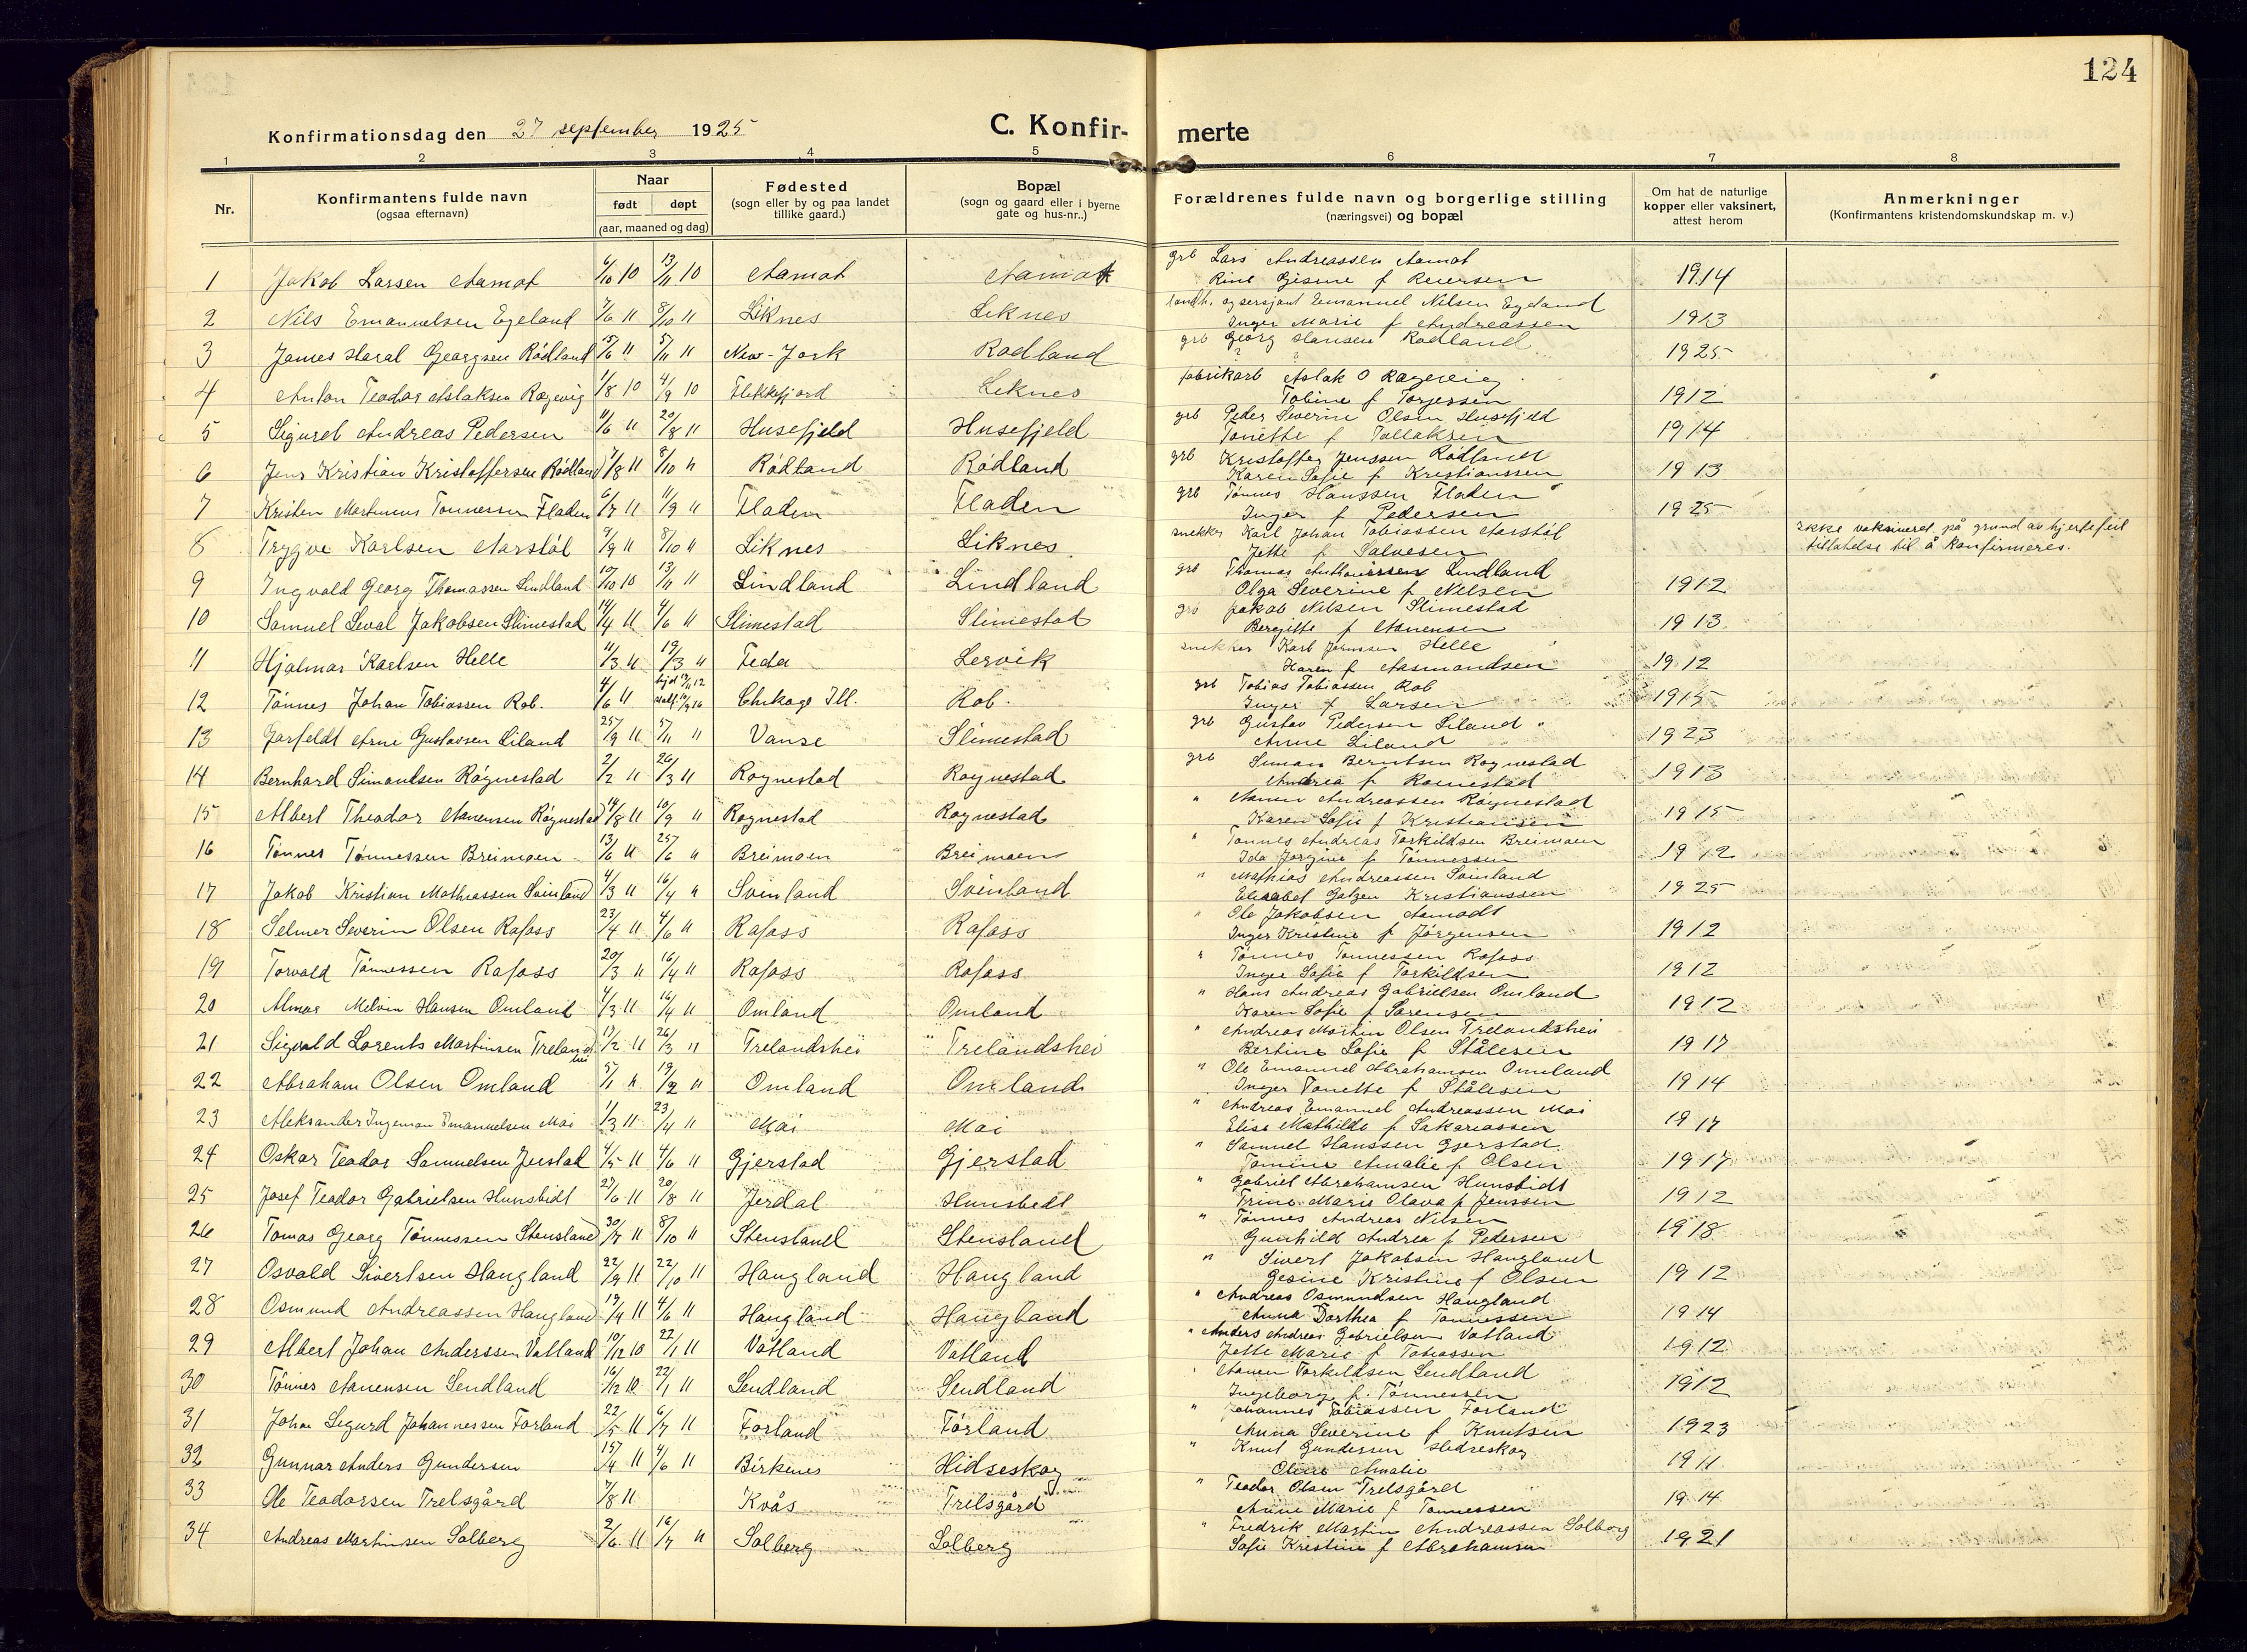 124
Konfirmationsdag den 27 september 1925
C. Konfir-merte
1 2 3 4 5 6 7 8
Nr.
Konfirmantens fulde navn
(ogsaa efternavn)
Naar
født døpt
(aar, maaned og dag)
Fødested
(sogn eller by og paa landet
tillike gaard.)
Bopæl
(sogn og gaard eller i byerne
gate og hus-nr..)
Forældrenes fulde navn og borgerlige stilling
(næringsvei) og bopæl
Om hat de naturlige
kopper eller vaksinert,
attest herom
Anmerkninger
(Konfirmantens kristendomskundskap m. v.)
1 Jakob Larsen Aamot 6/10 10 13/11 10 Aamot Aamot grb Lars Andreassen Aamot 1914
Gisine f Reiersen
2 Nils Emanuelsen Egeland 7/6 11 8/10 11 Liknes Liknes og sersjant Emanuel Nilsen Egeland 1913
Inger Marie f Andreassen
3 James Haral Georgsen Rødland 11 5/11 11 New-York Rødland grb Georg Hansen Rødland 1925
? ?
4 Anton Teodor Aslaksen Ragevig 1/8 10 4/9 10 Flekkefjord Liknes fabrikarb Aslak O Ragevig 1912
Tobine f Torjessen
5 Sigurd Andreas Pedersen 11/6 11 20/8 11 Husefjeld Husefjeld grb Peder Severin Olsen Husefjeld 1914
Tonette f Tollaksen
6 Jens Kristian Kristoffersen Rødland 7/8 11 8/10 11 Rødland Rødland grb Kristoffer Jenssen Rødland 1913
Karen Sofie f Kristianssen
7 Kristen Martinius Tønnessen Fladen 6/7 11 11/9 11 Fladen Fladen grb Tønnes Hanssen Fladen 1925
Inger f Pedersen
8 Trygve Karlsen Aarstøl 9/9 11 8/10 11 Liknes Liknes snekker Karl Johan Tobiassen Aarstøl Ikke vaksineret på grund av hjertefeil
Jette f Salvesen tillatelse til å konfirmeres.
9 Ingvald Georg Thomassen Lindland 10/10 10 13/11 11 Lindland Lindland grb Thomas Lindland 1912
Olga Severine f Nilsen
10 Samuel Seval Jakobsen Slimestad 14/4 11 4/6 11 Slimestad Slimestad grb Jakob Nilsen Slimestad 1913
Bergitte f Aanensen
11 Hjalmar Karlsen Helle 11/3 11 19/3 11 Feda Lervik snekker Karl Helle 1912
Karen f Aasmundsen
12 Tønnes Johan Tobiassen Rob. 4/6 11 Chikago Ill. Rob. grb Tobias Tobiassen Rob 1915
Inger f Larsen
13 Garfeldt Arne Gustavsen Liland 25/9 11 5/11 11 Vanse Slimestad grb Gustav Pedersen Liland 1923
Anne Liland
14 Bernhard Simonlsen Røgnestad 2/2 11 26/3 11 Rognestad Røgnestad grb Simon Berntsen Rognestad 1913
Andrea f Romestad
15 Albert Theodor Aanensen Røgnestad 14/8 11 10/9 11 Rognestad Rognestad " Aanen Andreassen Røgnestad 1915
Karen Sofie f Kristiansen
16 Tønnes Tønnessen Breimoen 13/6 11 25/6 11 Breimoen Breimoen " Tønnes Andreas Torkildsen Breimoen 1912
Ida Jorgine f Tønnessen
17 Jakob Kristian Mathiassen Svinland 4/3 11 16/4 11 Svinland Svinland " Mathias Andreassen Svinland 1925
Elisabet Kristianssen
18 Selmer Severin Olsen Rafoss 23/4 11 4/6 11 Rafoss Rafoss " Ole Jakobsen Aamodt 1912
Inger Kristine f Jørgensen
19 Torvald Tønnessen Rafoss 20/3 11 16/4 11 Rafoss Rafoss " Tønnes Tønnessen Rafoss 1912
Inger Sofie f Torkildsen
20 Almar Melvin Hansen Omland 4/3 11 16/4 11 Omland Omland " Hans Andreas Gabrielsen Omland 1912
Karen Sofie f Sørensen
21 Sigvald Lorents Martinsen Trelandshei 17/2 11 26/3 11 Trelandshei Trelandshei " Andreas Martin Olsen Trelandshei 1917
Bertine Sofie f Stålesen
22 Abraham Olsen Omland 5/1 11 19/2 11 Omland Omland " Ole Emanuel Abrahamsen Omland 1914
Inger Tonette f Stålesen
23 Aleksander Ingeman Emanuelsen Moi 1/3 11 23/4 11 Moi Moi " Andreas Emanuel Andreassen Moi 1917
Elise Mathilde f Sakariassen
24 Oskar Teodor Samuelsen Jerstad 4/5 11 4/6 11 Gjerstad Gjerstad " Samuel Hanssen Gjerstad 1917
Tomine Amalie f Olsen
25 Josef Teodor Gabrielsen Hunsbidt 27/6 11 20/8 11 Jerdal Hunsbedt " Gabriel Abrahamsen Hunsbidt 1912
Trine Marie Olava f Jenssen
26 Tomas Georg Tønnessen Stensland 30/7 11 8/10 11 Stensland Stensland " Tønnes Andreas Nilsen 1918
Gunhild Andrea f Pedersen
27 Osvald Sivertsen Haugland 22/9 11 22/10 11 Haugland Haugland " Sivert Jakobsen Haugland 1912
Gesine Kristine f Olsen
28 Osmund Andreassen Haugland 19/4 11 4/6 11 Haugland Haugland " Andreas Osmundsen Haugland 1914
Anna Dorthea f Tønnessen
29 Albert Johan Anderssen Vatland 10/12 10 22/1 11 Vatland Vatland " Anders Andreas Gabrielsen Vatland 1912
Jette Marie f Tobiassen
30 Tønnes Aanensen Sendland 16/12 10 22/1 11 Sendland Sendland " Aanen Torkildsen Sendland 1912
Ingeborg f. Tønnessen
31 Johan Sigurd Johannessen Førland 22/5 11 6/7 11 Førland Førland " Johannes Tobiassen Førland 1923
Anna Severine f Knutsen
32 Gunnar Anders Gundersen 15/4 11 4/6 11 Birkenes Hidseskog " Knut Gundersen Hedreskog 1911
Oline Amalie
33 Ole Teodorsen Trelsgård 7/8 11 Kvås Trelsgård " Teodor Olsen Trelsgård 1914
Anne Marie f Tønnessen
34 Andreas Martinsen Solberg 2/6 11 16/7 11 Solberg Solberg " Fredrik Martin Andreassen Solberg 1921
Sofie Kristine f Abrahamsen